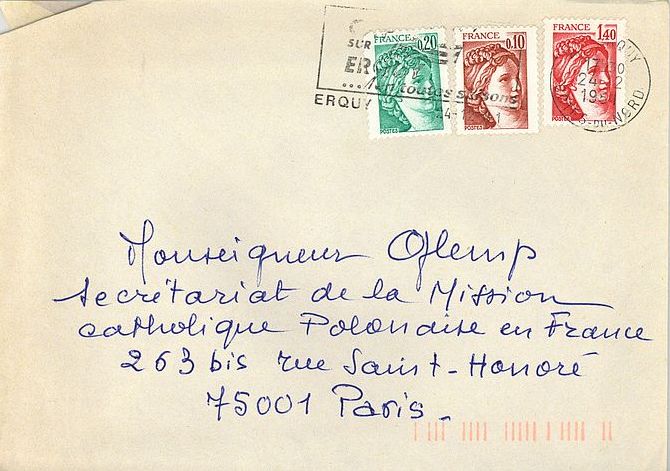 SUR
ER
...en toutes saisons
ERQUY
FRANCE 0,20
POSTES
FRANCE 0,10
POSTES
FRANCE 1,40
POSTES
24-12
DU-NORD
Monseigneur Glemp
secrétariat de la Mission
catholique Polonaise en France
263 bis rue Saint-Honoré
75001 Paris.